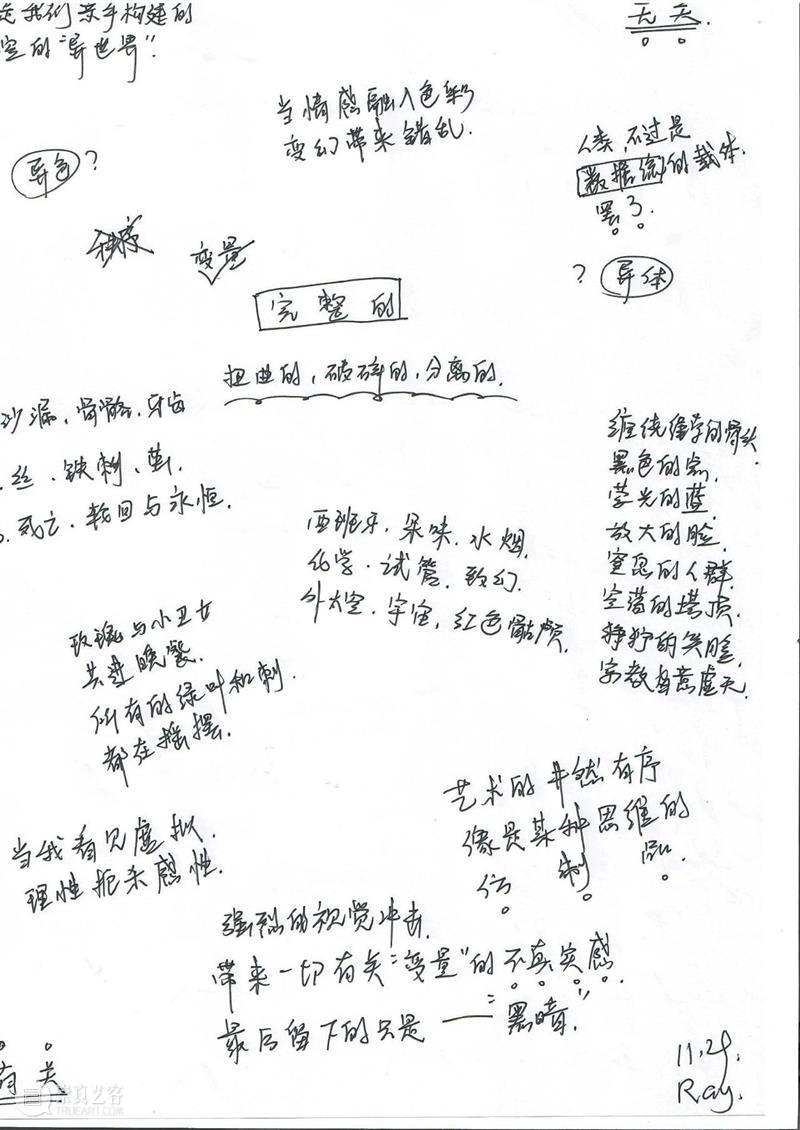 是我们亲手构建的
空的“异世界”.
无关.
当情感融入色彩
变幻带来错乱.
异色?
人类,不过是
数据流的载体.
罢了.
秩序
变量
? 异体
完整的
扭曲的,破碎的,分离的.
沙漏、骨骼、牙齿
丝、铁刺、茧.
死亡、轮回与永恒.
缠绕绷带的骨头
黑色的
荧光的蓝
放大的脸.
窒息的人群.
空荡的塔顶.
狰狞的笑脸.
宗教与意虚无.
西班牙.呆味.水烟.
化学.试管.致幻.
外太空.宇宙,红色骷髅.
玫瑰与小丑女
共进晚餐.
所有的绿叶和刺.
都在摇摆.
艺术的井然有序
像是某种思维的
仿制品.
当我看见虚拟.
理性扼杀感性.
强烈的视觉冲击.
带来一切有关“变量”的不真实感
最后留下的只是——“黑暗”.
有关
11.29.
Ray.
崇真艺客
TRUEART.COM